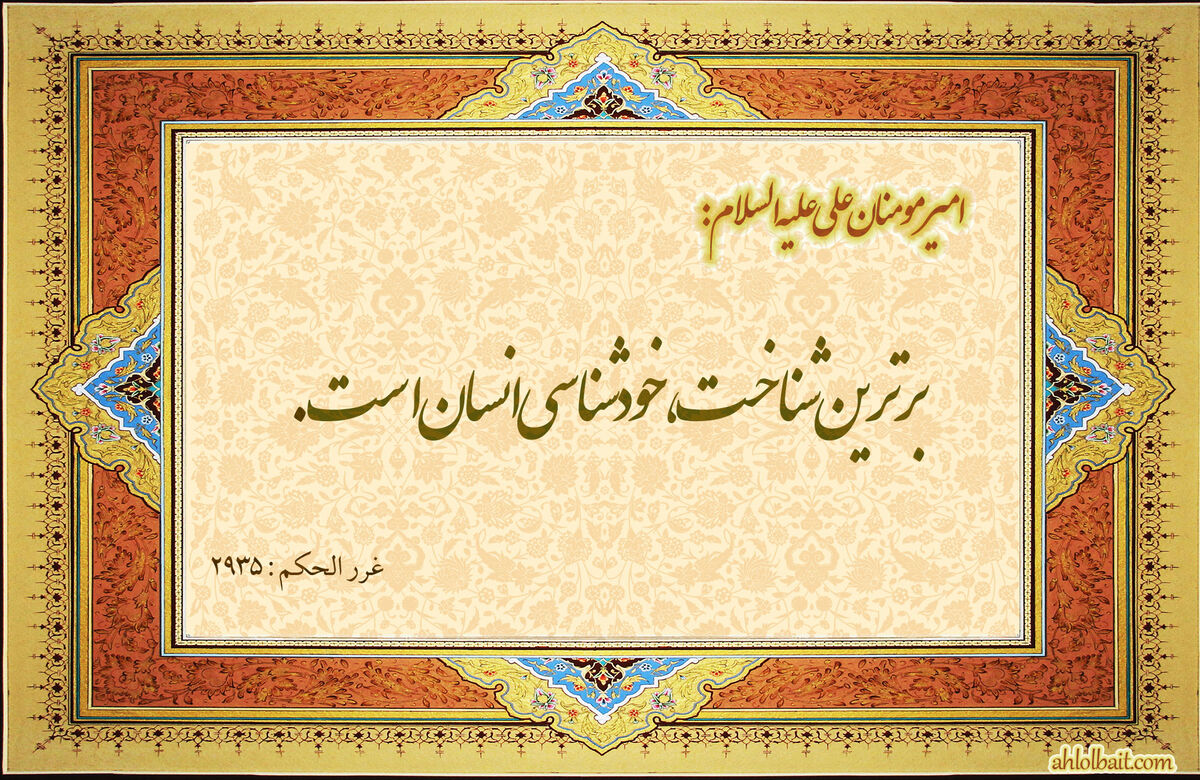 امیر مومنان علی علیه السلام:
برترین شناخت، خودشناسی انسان است.
غرر الحکم: ۲۹۳۵
ahlolbait.com